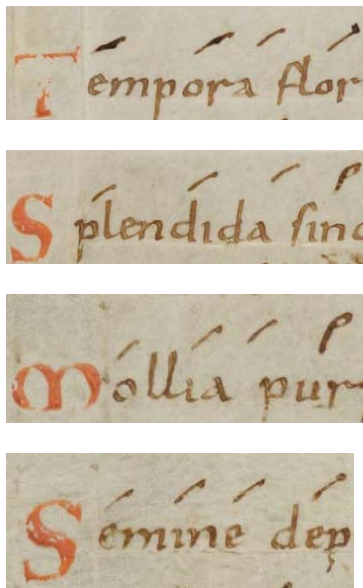 Tempora flor
Splendida sine
Mollia pur
Semine dep